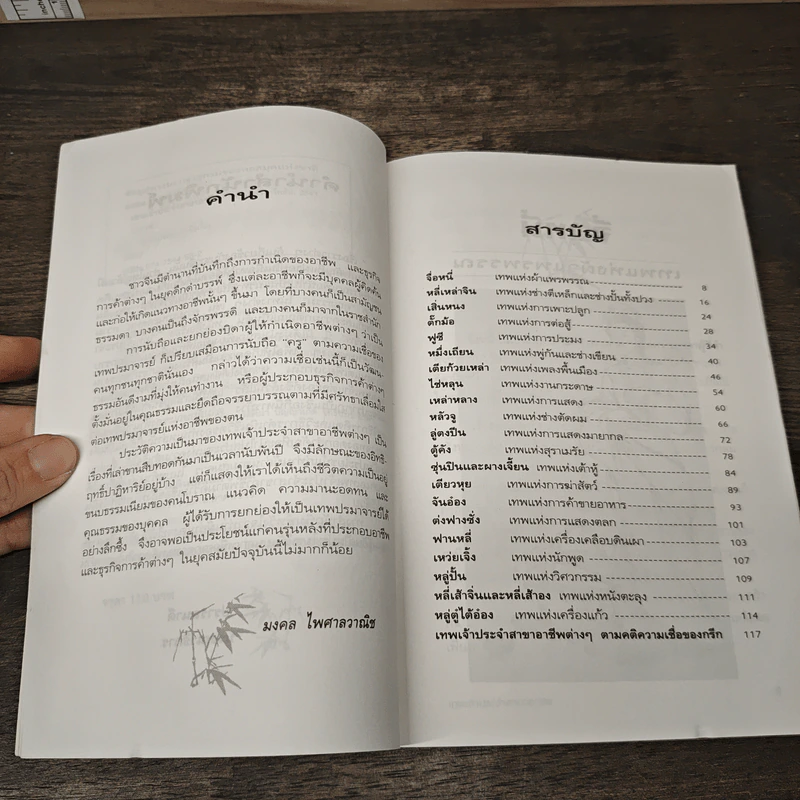 คำนำ
ชาวจีนมีตำนานที่บันทึกถึงการกำเนิดของอาชีพ และธุรกิจ
การค้าต่างๆ ในยุคดึกดำบรรพ์ ซึ่งแต่ละอาชีพก็จะมีบุคคลผู้คิดค้น
และก่อให้เกิดแนวทางอาชีพนั้นๆ ขึ้นมา โดยที่บางคนก็เป็นสามัญชน
ธรรมดา บางคนเป็นถึงจักรพรรดิ และบางคนก็มาจากในราชสำนัก
การนับถือและยกย่องบิดาผู้ให้กำเนิดอาชีพต่างๆ ว่าเป็น
เทพปรมาจารย์ ก็เปรียบเสมือนการนับถือ "ครู" ตามความเชื่อของ
คนทุกชนทุกชาตินั่นเอง กล่าวได้ว่าความเชื่อเช่นนี้ก็เป็นวัฒน-
ธรรมอันดีงามที่มุ่งให้คนทำงาน หรือผู้ประกอบธุรกิจการค้าต่างๆ
ตั้งมั่นอยู่ในคุณธรรมและยึดถือจรรยาบรรณตามที่มีศรัทธาเลื่อมใส
ต่อเทพปรมาจารย์แห่งอาชีพของตน
ประวัติความเป็นมาของเทพเจ้าประจำสาขาอาชีพต่างๆ เป็น
เรื่องที่เล่าขานสืบทอดกันมาเป็นเวลานับพันปี จึงมีลักษณะของอิทธิ-
ฤทธิ์ปาฏิหาริย์อยู่บ้าง แต่ก็แสดงให้เราได้เห็นถึงชีวิตความเป็นอยู่
ขนบธรรมเนียมของคนโบราณ แนวคิด ความมานะอดทน และ
คุณธรรมของบุคคล ผู้ได้รับการยกย่องให้เป็นเทพปรมาจารย์ได้
อย่างลึกซึ้ง จึงอาจพอเป็นประโยชน์แก่คนรุ่นหลังที่ประกอบอาชีพ
และธุรกิจการค้าต่างๆ ในยุคสมัยปัจจุบันนี้ไม่มากก็น้อย
มงคล ไพศาลวาณิช
สารบัญ
จื่อหนี่ เทพแห่งผ้าแพรพรรณ 8
หลี่เหล่าจิน เทพแห่งช่างตีเหล็กและช่างปั้นทั้งปวง 16
เสิ่นหนง เทพแห่งการเพาะปลูก 24
ตั๊กม้อ เทพแห่งการต่อสู้ 28
ฟูซี เทพแห่งการประมง 34
หมึ่งเถียน เทพแห่งพู่กันและช่างเขียน 40
เตียก้วยเหล่า เทพแห่งเพลงพื้นเมือง 46
ไซ่หลุน เทพแห่งงานกระดาษ 54
เหล่าหลาง เทพแห่งการแสดง 60
หลัวจู เทพแห่งช่างตัดผม 66
ลู่ตงปิน เทพแห่งการแสดงมายากล 72
ตู้คัง เทพแห่งสุราเมรัย 78
ซุ่นปินและผางเจี้ยน เทพแห่งเต้าหู้ 84
เตียวหุย เทพแห่งการฆ่าสัตว์ 89
จันอ๋อง เทพแห่งการค้าขายอาหาร 93
ต่งฟางซั่ง เทพแห่งการแสดงตลก 101
ฟานหลี่ เทพแห่งเครื่องเคลือบดินเผา 103
เหว่ยเจิ้ง เทพแห่งนักพูด 107
หลู่ปั้น เทพแห่งวิศวกรรม 109
หลี่เส้าจิ่นและหลี่เส้าอง เทพแห่งหนังตะลุง 111
หลู่ตู่ไต้อ๋อง เทพแห่งเครื่องแก้ว 114
เทพเจ้าประจำสาขาอาชีพต่างๆ ตามคติความเชื่อของกรีก 117